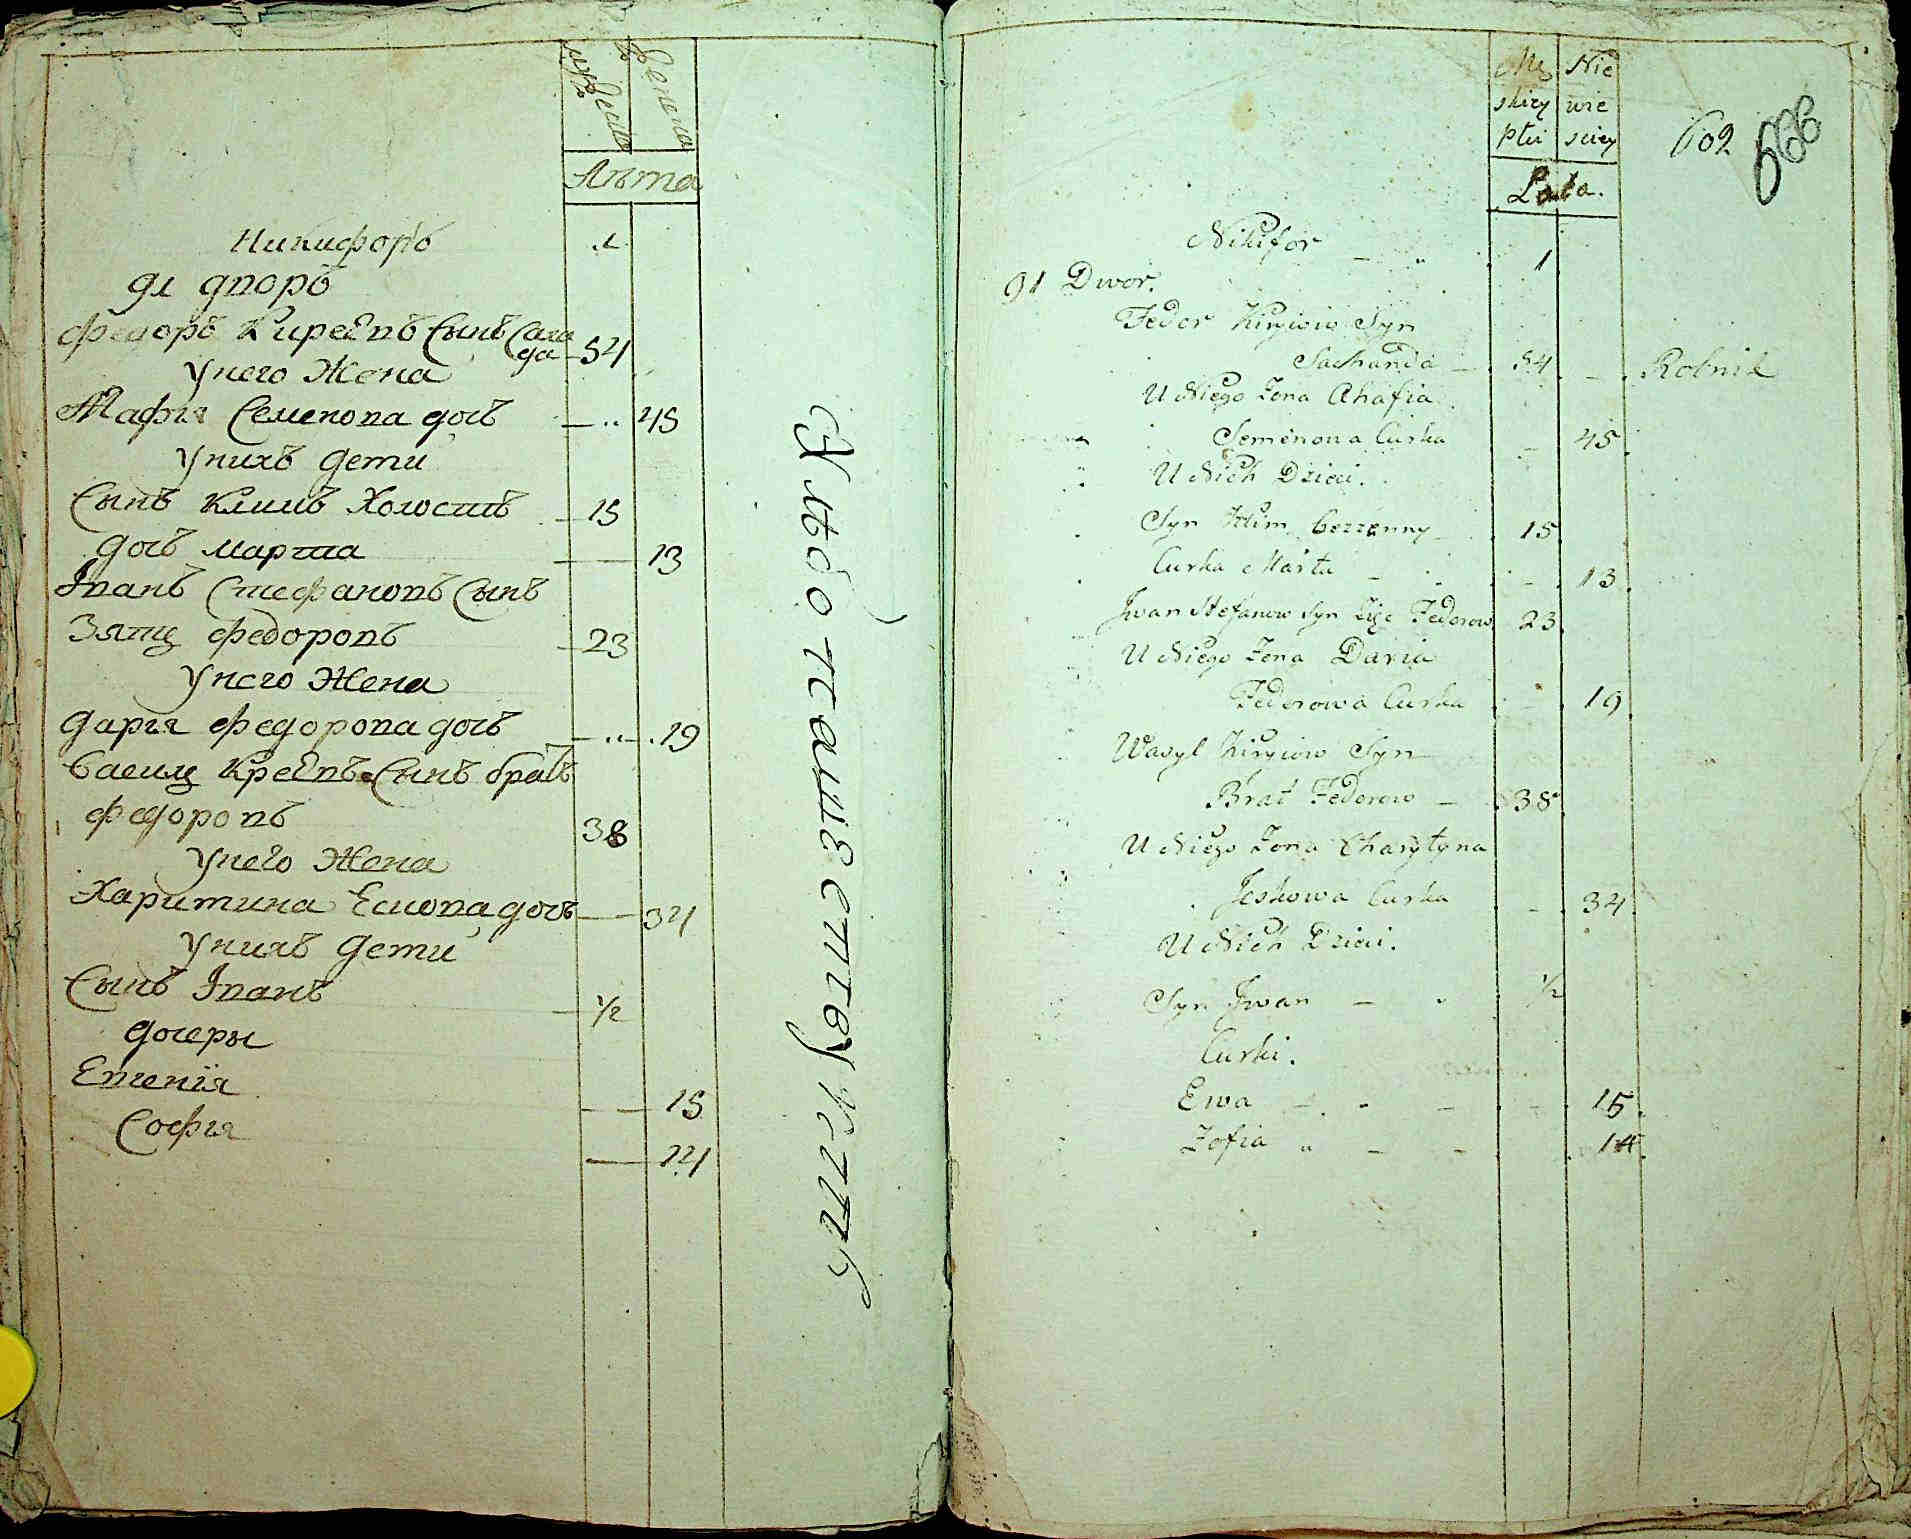 мужеска
женска
Лѣта
Никифоръ 1
91 дворъ
Федоръ Киреевъ Сынъ Сахан
да 54
У него Жена
Агафія Семенова дочь 45
У нихъ Дети
Сынъ Климъ Холостъ 15
дочь марта 13
Іванъ Стефановъ Сынъ
Зять Федоровъ 23
У него Жена
Дарія Федорова дочь 19
Василь Киреевъ Сынъ братъ
Федоровъ 38
У него Жена
Харитина Есковa дочь 34
У нихъ Дети
Сынъ Іванъ 1/2
дочеры
Евгенія 15
Софія 14
Mę Nie
skiey wie
płci sciey
Lata.
602
666
Nikifor 1
91 Dwor.
Fedor Kiryiow Syn
Sachanda 54 Rolnik
U Niego Zona Ahafia
Semenowa Curka 45
U Nich Dzieci.
Syn Klim bezzenny 15
Curka Marta 13
Jwan Stefanow Syn Zięc Fedorow 23
U Niego Zona Daria
Fedorowa Curka 19
Wasyl Kiryiow Syn
Brat Fedorow 38
U Niego Zona Charytyna
Jeskowa Curka 34
U Nich Dzieci.
Syn Jwan 1/2
Curki.
Ewa 15
Zofia 14